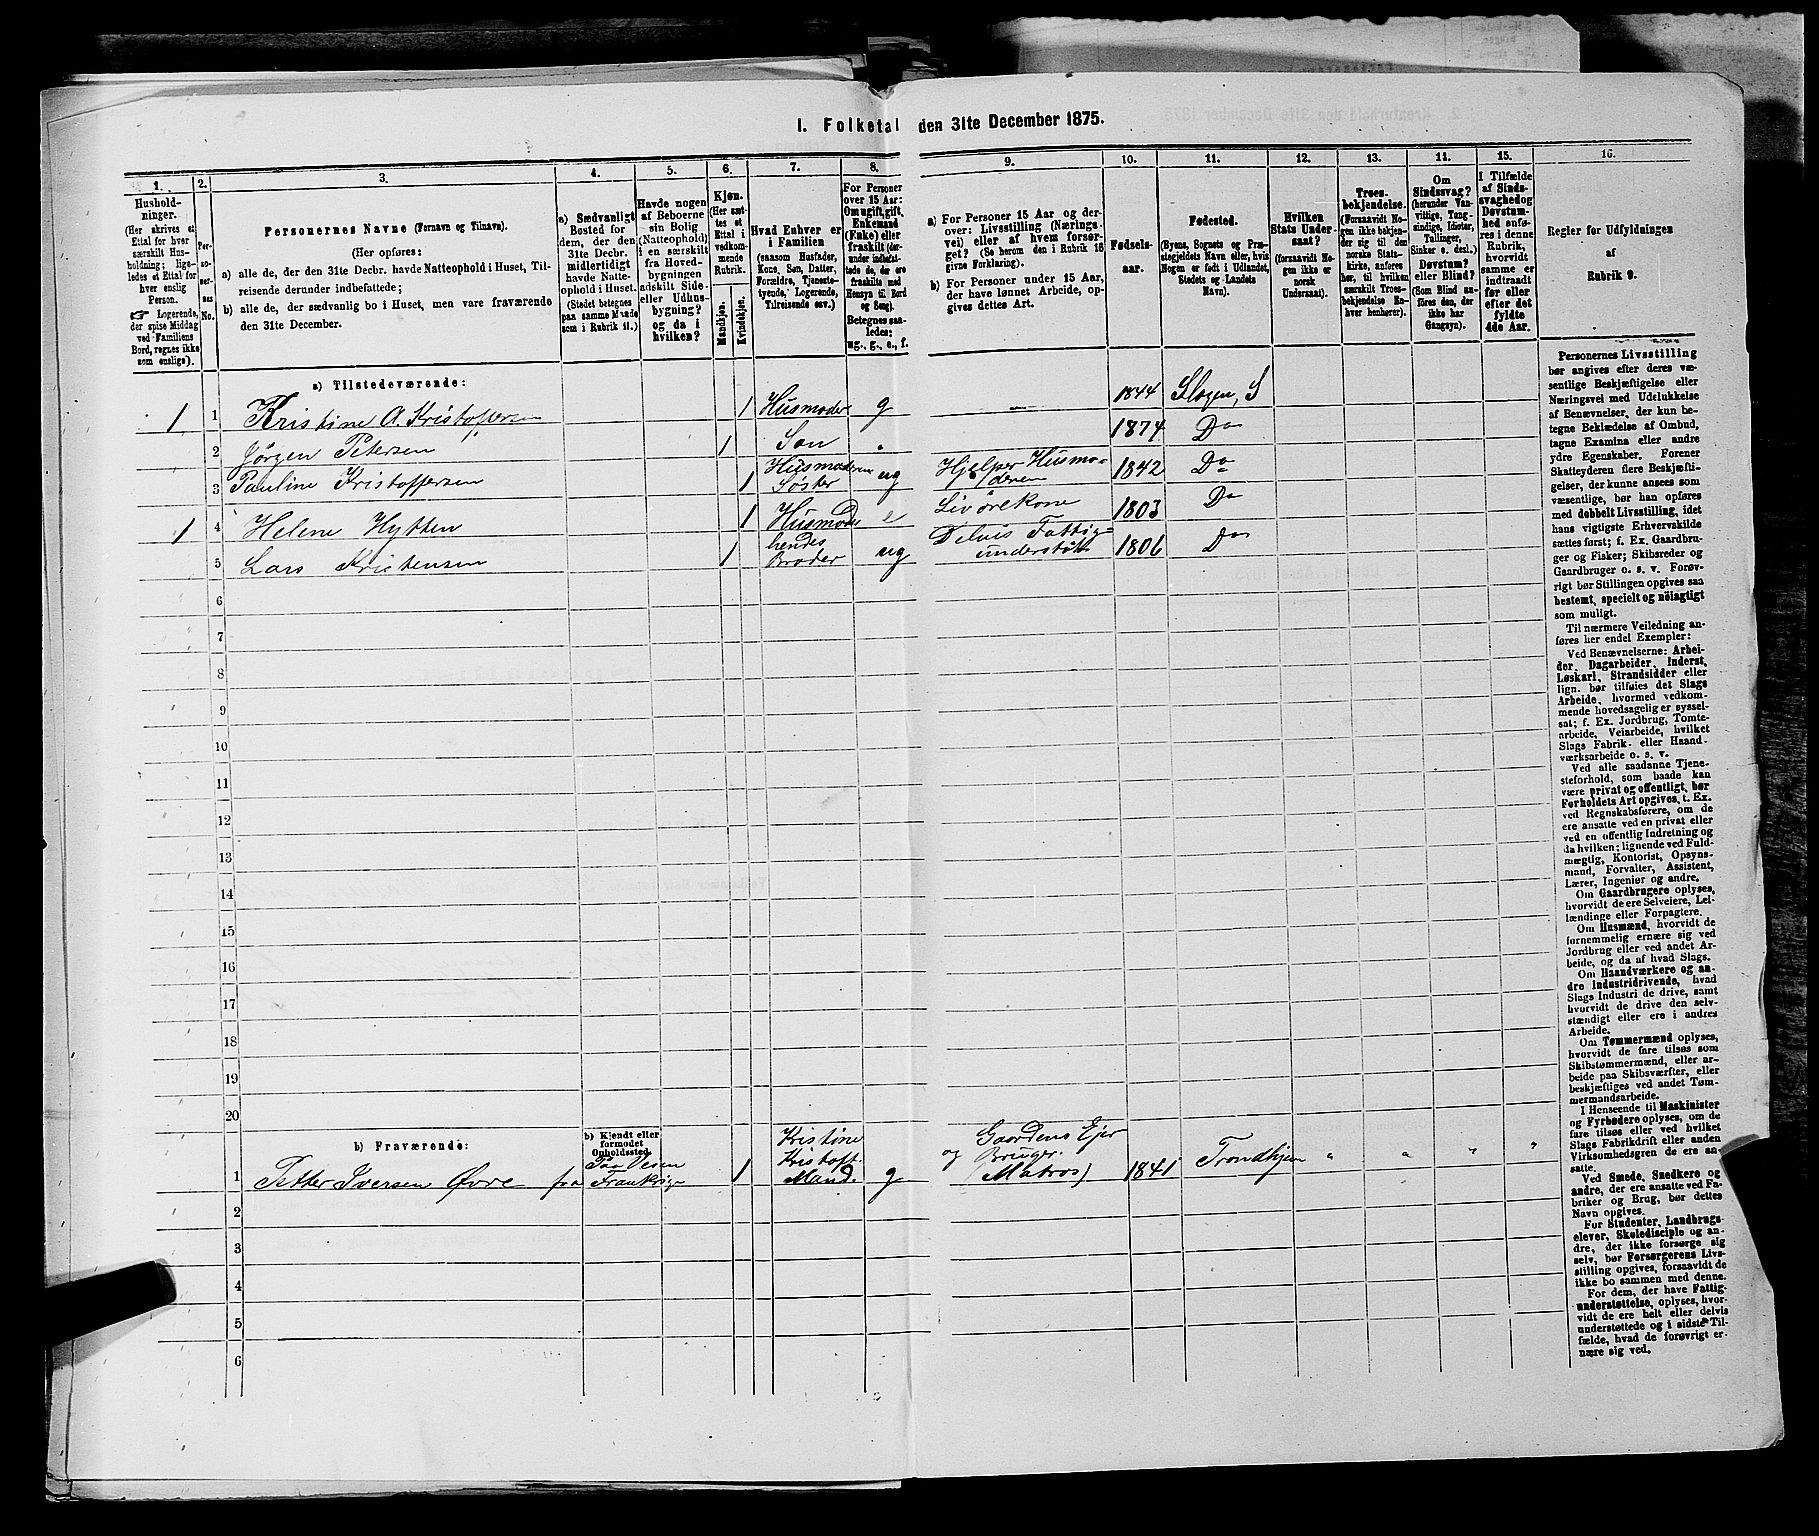 I. Folketal den 31te December 1875.
1.
Husholdninger.
(Her skrives et
Ettal for hver
særskilt Husholdning; ligeledes
et Ettal for
hver enslig
Person.
☞ Logerende,
der spise Middag
ved Familiens
Bord, regnes ikke
som enslige).
2.
Personernes No.
3.
Personernes Navne (Fornavn og Tilnavn).
(Her opføres:
a) alle de, der den 31te Decbr. havde Natteophold i Huset, Tilreisende
derunder indbefattede;
b) alle de, der sædvanlig bo i Huset, men vare fraværende
den 31te December.
4.
a) Sædvanligt
Bosted for
dem, der den
31te Decbr.
midlertidigt
havde Natteophold
i Huset.
(Stedet betegnes
paa samme Maade
som i Rubrik 11.)
5.
Havde nogen
af Beboerne
sin Bolig
(Natteophold)
i en særskilt
fra Hovedbygningen
adskilt Side-
eller Udhusbygning?
og da i
hvilken?
6.
Kjøn.
(Her sættes
et
Ettal i
vedkommende
Rubrik.
Mandkjøn.
Kvindekjøn.
7.
Hvad Enhver er
i Familien
(saasom Husfader,
Kone, Søn, Datter,
Forældre, Tjenestetyende,
Logerende,
Tilreisende osv.)
8.
For Personer
over 15 Aar:
Om ugift, gift,
Enkemand
(Enke) eller
fraskilt (derunder
indbefattede
de, der ere
fraskilte med
Hensyn til Bord
og Seng).
Betegnes saaledes:
ug., g., e., f.
9.
a) For Personer 15 Aar og derover:
Livsstilling (Næringsvei)
eller af hvem forsørget?
(Se herom den i Rubrik 16
givne Forklaring).
b) For Personer under 15 Aar,
der have lønnet Arbeide, opgives
dettes Art.
10.
Fødselsaar.
11.
Fødested.
(Byens, Sognets og Præstegjeldets
Navn eller, hvis
Nogen er født i Udlandet,
Stedets og Landets
Navn).
12.
Hvilken
Stats Undersaat?
(forsaavidt Nogen
ikke er
norsk
Undersaat).
13.
Troesbekjendelse.
(Forsaavidt Nogen
ikke bekjender
sig til den
norske Statskirke,
anføres
her, til hvilken
særskilt Troesbekjendelse
Enhver
henhører).
14.
Om
Sindssvag?
(herunder Vanvittige,
Tungsindige,
Idioter,
Tullinger,
Sinker o. desl.)
Døvstum?
eller Blind?
(Som Blind anføres
den, der
ikke har
Gangsyn).
15.
I Tilfælde
af Sindssvaghed
og
Døvstumhed
anføres
i denne
Rubrik,
hvorvidt
samme er
indtraadt
før eller
efter det
fyldte
4de Aar.
16.
Regler for Udfyldningen
af
Rubrik 9.
a) Tilstedeværende:
1 1 Kristine A. Kristoffersen 1 Husmoder g — 1844 Slagen, S
2 Jörgen Petersen 1 Søn 1874 Do
3 Pauline Kristoffersen 1 Husmoderens Søster ug Hjelper Husmoderen 1842 Do
1 4 Helene Hytten 1 Husmoder e Livörekone 1803 Do
5 Lars Kristensen 1 hendes Broder ug Delvis Fattigunderstöt 1806 Do
6
7
8
9
10
11
12
13
14
15
16
17
18
19
20
b) Fraværende:
b) Kjendt eller
formodet
Opholdssted.
1 Petter Iversen Øvre fra Frankrige 1 Kristine Kristoff. Mand. g Gaardens Ejer og Bruger. (Matros) 1841 Trondhjem " " " "
2
3
4
5
6
Personernes Livsstilling
bør angives efter deres væsentlige
Beskjæftigelse eller
Næringsvei med Udelukkelse
af Benævnelser, der kun betegne
Beklædelse af Ombud,
tagne Examina eller andre
ydre Egenskaber. Forener
Skatteyderen flere Beskjæftigelser,
der kunne ansees som
væsentlige, bør han opføres
med dobbelt Livsstilling, idet
hans vigtigste Erhvervskilde
sættes først; f. Ex. Gaardbruger
og Fisker; Skibsreder og
Gaardbruger o. s. v. Forøvrigt
bør Stillingen opgives saa
bestemt, specielt og nøiagtigt
som muligt.
Til nærmere Veiledning anføres
her endel Exempler:
Ved Benævnelserne: Arbeider,
Dagarbeider, Inderst,
Løskarl, Strandsidder eller
lign. bør tilføies det Slags
Arbeide, hvormed vedkommende
hovedsagelig er sysselsat;
f. Ex. Jordbrug, Tomtearbeide,
Veiarbeide, hvilket
Slags Fabrik- eller Haandværksarbeide
o. s. v.
Ved alle saadanne Tjenesteforhold,
som baade kan
være privat og offentligt, bør
Forholdets Art opgives, t. Ex.
ved Regnskabsførere, om de
ere ansatte ved en privat eller
ved en offentlig Indretning og
da hvilken; lignende ved Fuldmægtig,
Kontorist, Opsynsmand,
Forvalter, Assistent,
Lærer, Ingeniør og andre.
Om Gaardbrugere oplyses,
hvorvidt de ere Selveiere, Leilændinge
eller Forpagtere.
Om Husmænd, hvorvidt de
fornemmelig ernære sig ved
Jordbrug eller ved andet Arbeide,
og da af hvad Slags.
Om Haandværkere og andre
Industridrivende, hvad
Slags Industri de drive, samt
hvorvidt de drive den selvstændigt
eller ere i andres
Arbeide.
Om Tømmermænd oplyses,
hvorvidt de fare tilsøs som
Skibstømmermænd, eller arbeide
paa Skibsværfter, eller
beskjæftiges ved andet Tømmermandsarbeide.
I Henseende til Maskinister
og Fyrbødere oplyses, om de
fare tilsøs eller ved hvilket
Slags Fabrikdrift eller anden
Virksomhedsgren de ere ansatte.
Ved Smede, Snedkere og
andre, der ere ansatte ved Fabriker
og Brug, bør dettes
Navn opgives.
For Studenter, Landbrugselever,
Skoledisciple og andre,
der ikke forsørge sig
selv, bør Forsørgerens Livsstilling
opgives, forsaavidt de
ikke bo sammen med denne.
For dem, der have Fattigunderstøttelse,
oplyses, hvorvidt
de ere helt eller delvis
understøttede og i sidste Tilfælde,
hvad de forøvrigt ernære
sig ved.